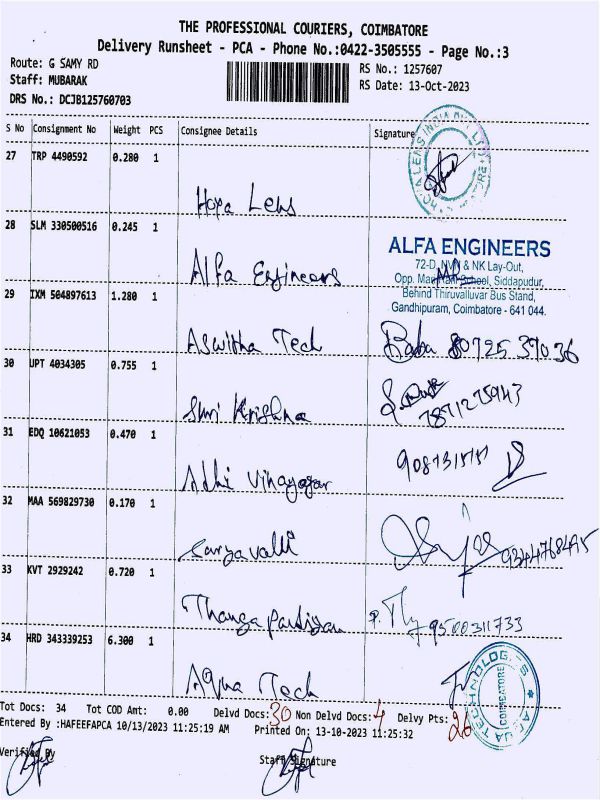 THE PROFESSIONAL COURIERS, COIMBATORE
Delivery Runsheet - PCA - Phone No.:0422-3505555 - Page No.:3
Route: G SAMY RD
RS No.: 1257607
Staff: MUBARAK
RS Date: 13-Oct-2023
DRS No.: DCJB125760703
S No Consignment No Weight PCS Consignee Details Signature
27 TRP 4490592 0.280 1
Hopa Lens
28 SLM 330500516 0.245 1
ALFA ENGINEERS
72-D, NVN & NK Lay-Out,
Opp. School, Siddapudur,
Behind Thiruvalluvar Bus Stand,
Gandhipuram, Coimbatore - 641 044.
Alfa Engineers
29 IXM 504897613 1.280 1
Aswitha Tech Baba 80725 37036
30 UPT 4034305 0.755 1
Shri Krishna 7871275943
31 EDQ 10621053 0.470 1
Adhi Vinayagar
32 MAA 569829730 0.170 1
33 KVT 2929242 0.720 1
Thanga Pandiyan 9500311733
34 HRD 343339253 6.300 1
Aqua Tech
COIMBATORE
Tot Docs: 34 Tot COD Amt: 0.00 Delvd Docs: 30 Non Delvd Docs: 4 Delvy Pts: 26
Entered By :HAFEEFAPCA 10/13/2023 11:25:19 AM Printed On: 13-10-2023 11:25:32
Verified By Staff Signature